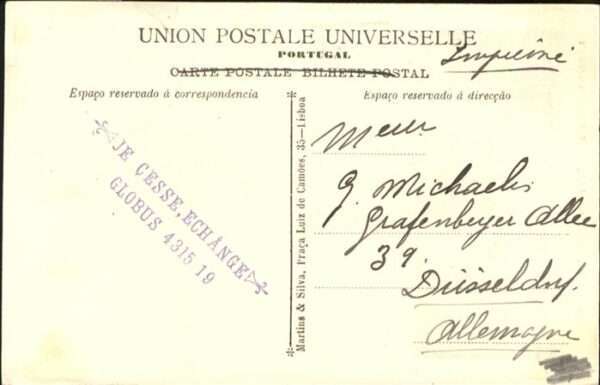 UNION POSTALE UNIVERSELLE
PORTUGAL
CARTE POSTALE BILHETE POSTAL
Imprimé
Espaço reservado á correspondencia
Espaço reservado á direcção
JE CESSE, ECHANGE
GLOBUS 4315 19
Martins & Silva, Praça Luiz de Camões, 35—Lisboa
G. Michaelis
Grafenberger Allee
39.
Düsseldorf.
Allemagne